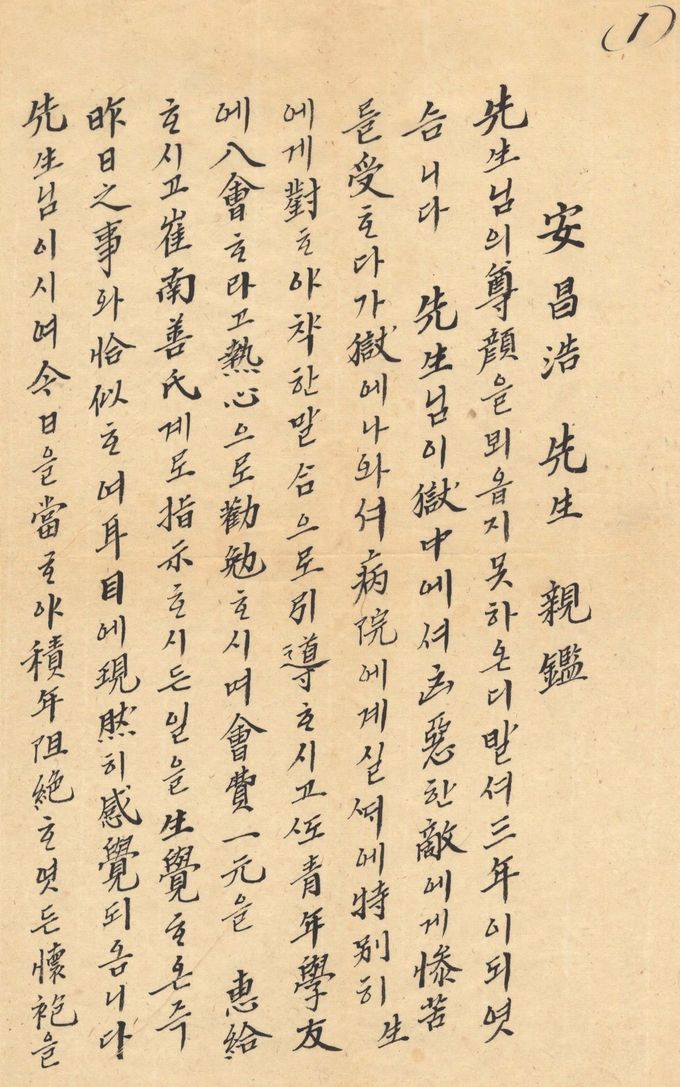 (1)
安昌浩 先生 親鑑
先生님의尊顔을뫼옵지못하온디발셔三年이되엿
슴니다 先生님이獄中에셔凶惡한敵에게慘苦
를受ᄒᆞ다가獄에나와셔病院에계실ᄯᅥ에特别히生
에게對ᄒᆞ야착한말슴으로引導ᄒᆞ시고ᄯᅩ靑年學友
에入會ᄒᆞ라고熱心으로勸勉ᄒᆞ시며會費一元을 惠給
ᄒᆞ시고崔南善氏게로指示ᄒᆞ시든일을生覺ᄒᆞ온즉
昨日之事와恰似ᄒᆞ여耳目에現然히感覺되옴니다
先生님이시여今日을當ᄒᆞ야積年阻絶ᄒᆞ엿든懷袍을